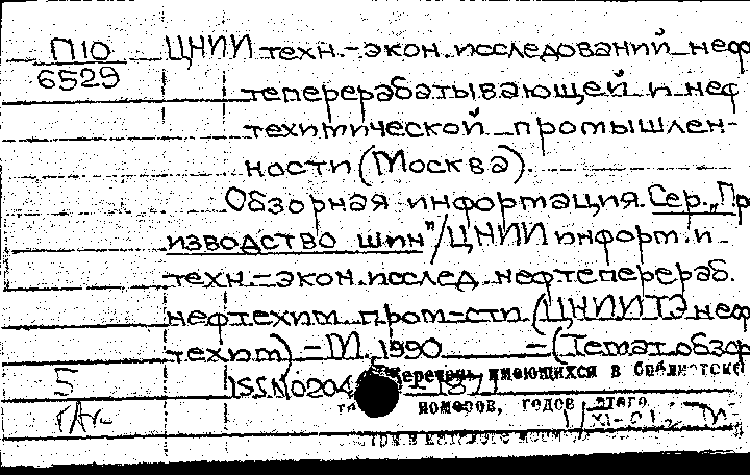 П10 ЦНИИ техн.-экон. исследований неф
6529 теперерабатывающей и неф
техимической промышлен-
ности (Москва).
Обзорная информация. Сер. „Пр
изводство шин"/ЦНИИ информ. и
техн.-экон. исслед. нефтеперераб.
нефтехим. пром-сти (ЦНИИТЭнеф
техим) - М. 1990 - (Темат. обзор
5 ISSN0204 - 1871 Перечень имеющихся в библиотеке
номеров, годов этого
XI-91